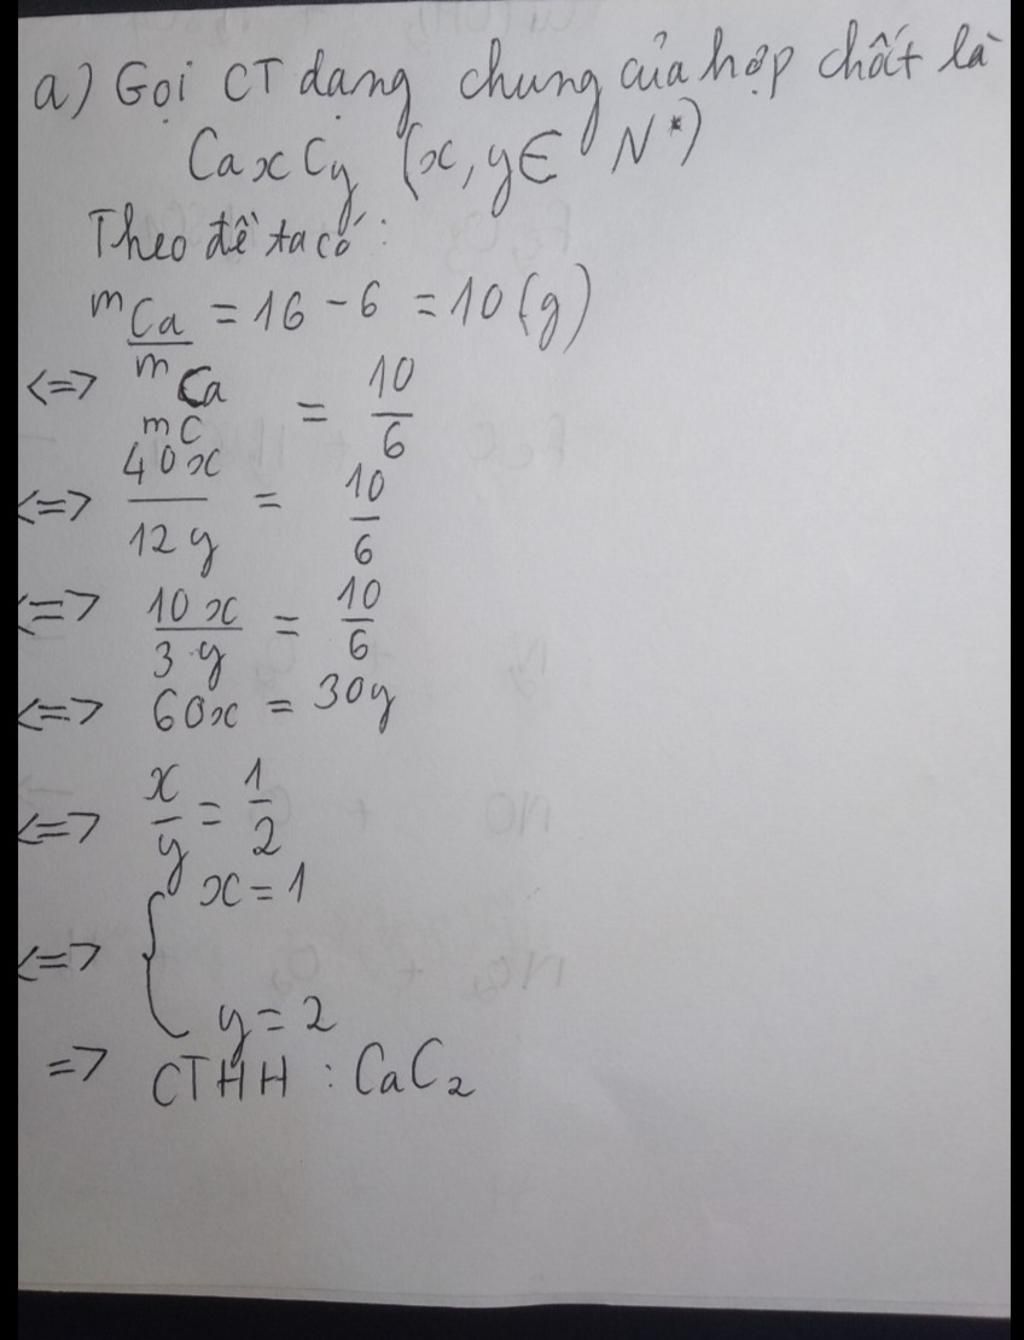 a) Gọi CT dạng chung của hợp chất là
CaxCy (x, y ∈ N*)
Theo đề ta có:
mCa = 16 - 6 = 10 (g)
<=> mCa / mC = 10/6
<=> 40x / 12y = 10/6
<=> 10x / 3y = 10/6
<=> 60x = 30y
<=> x/y = 1/2
<=> { x = 1
y = 2
=> CTHH : CaC2